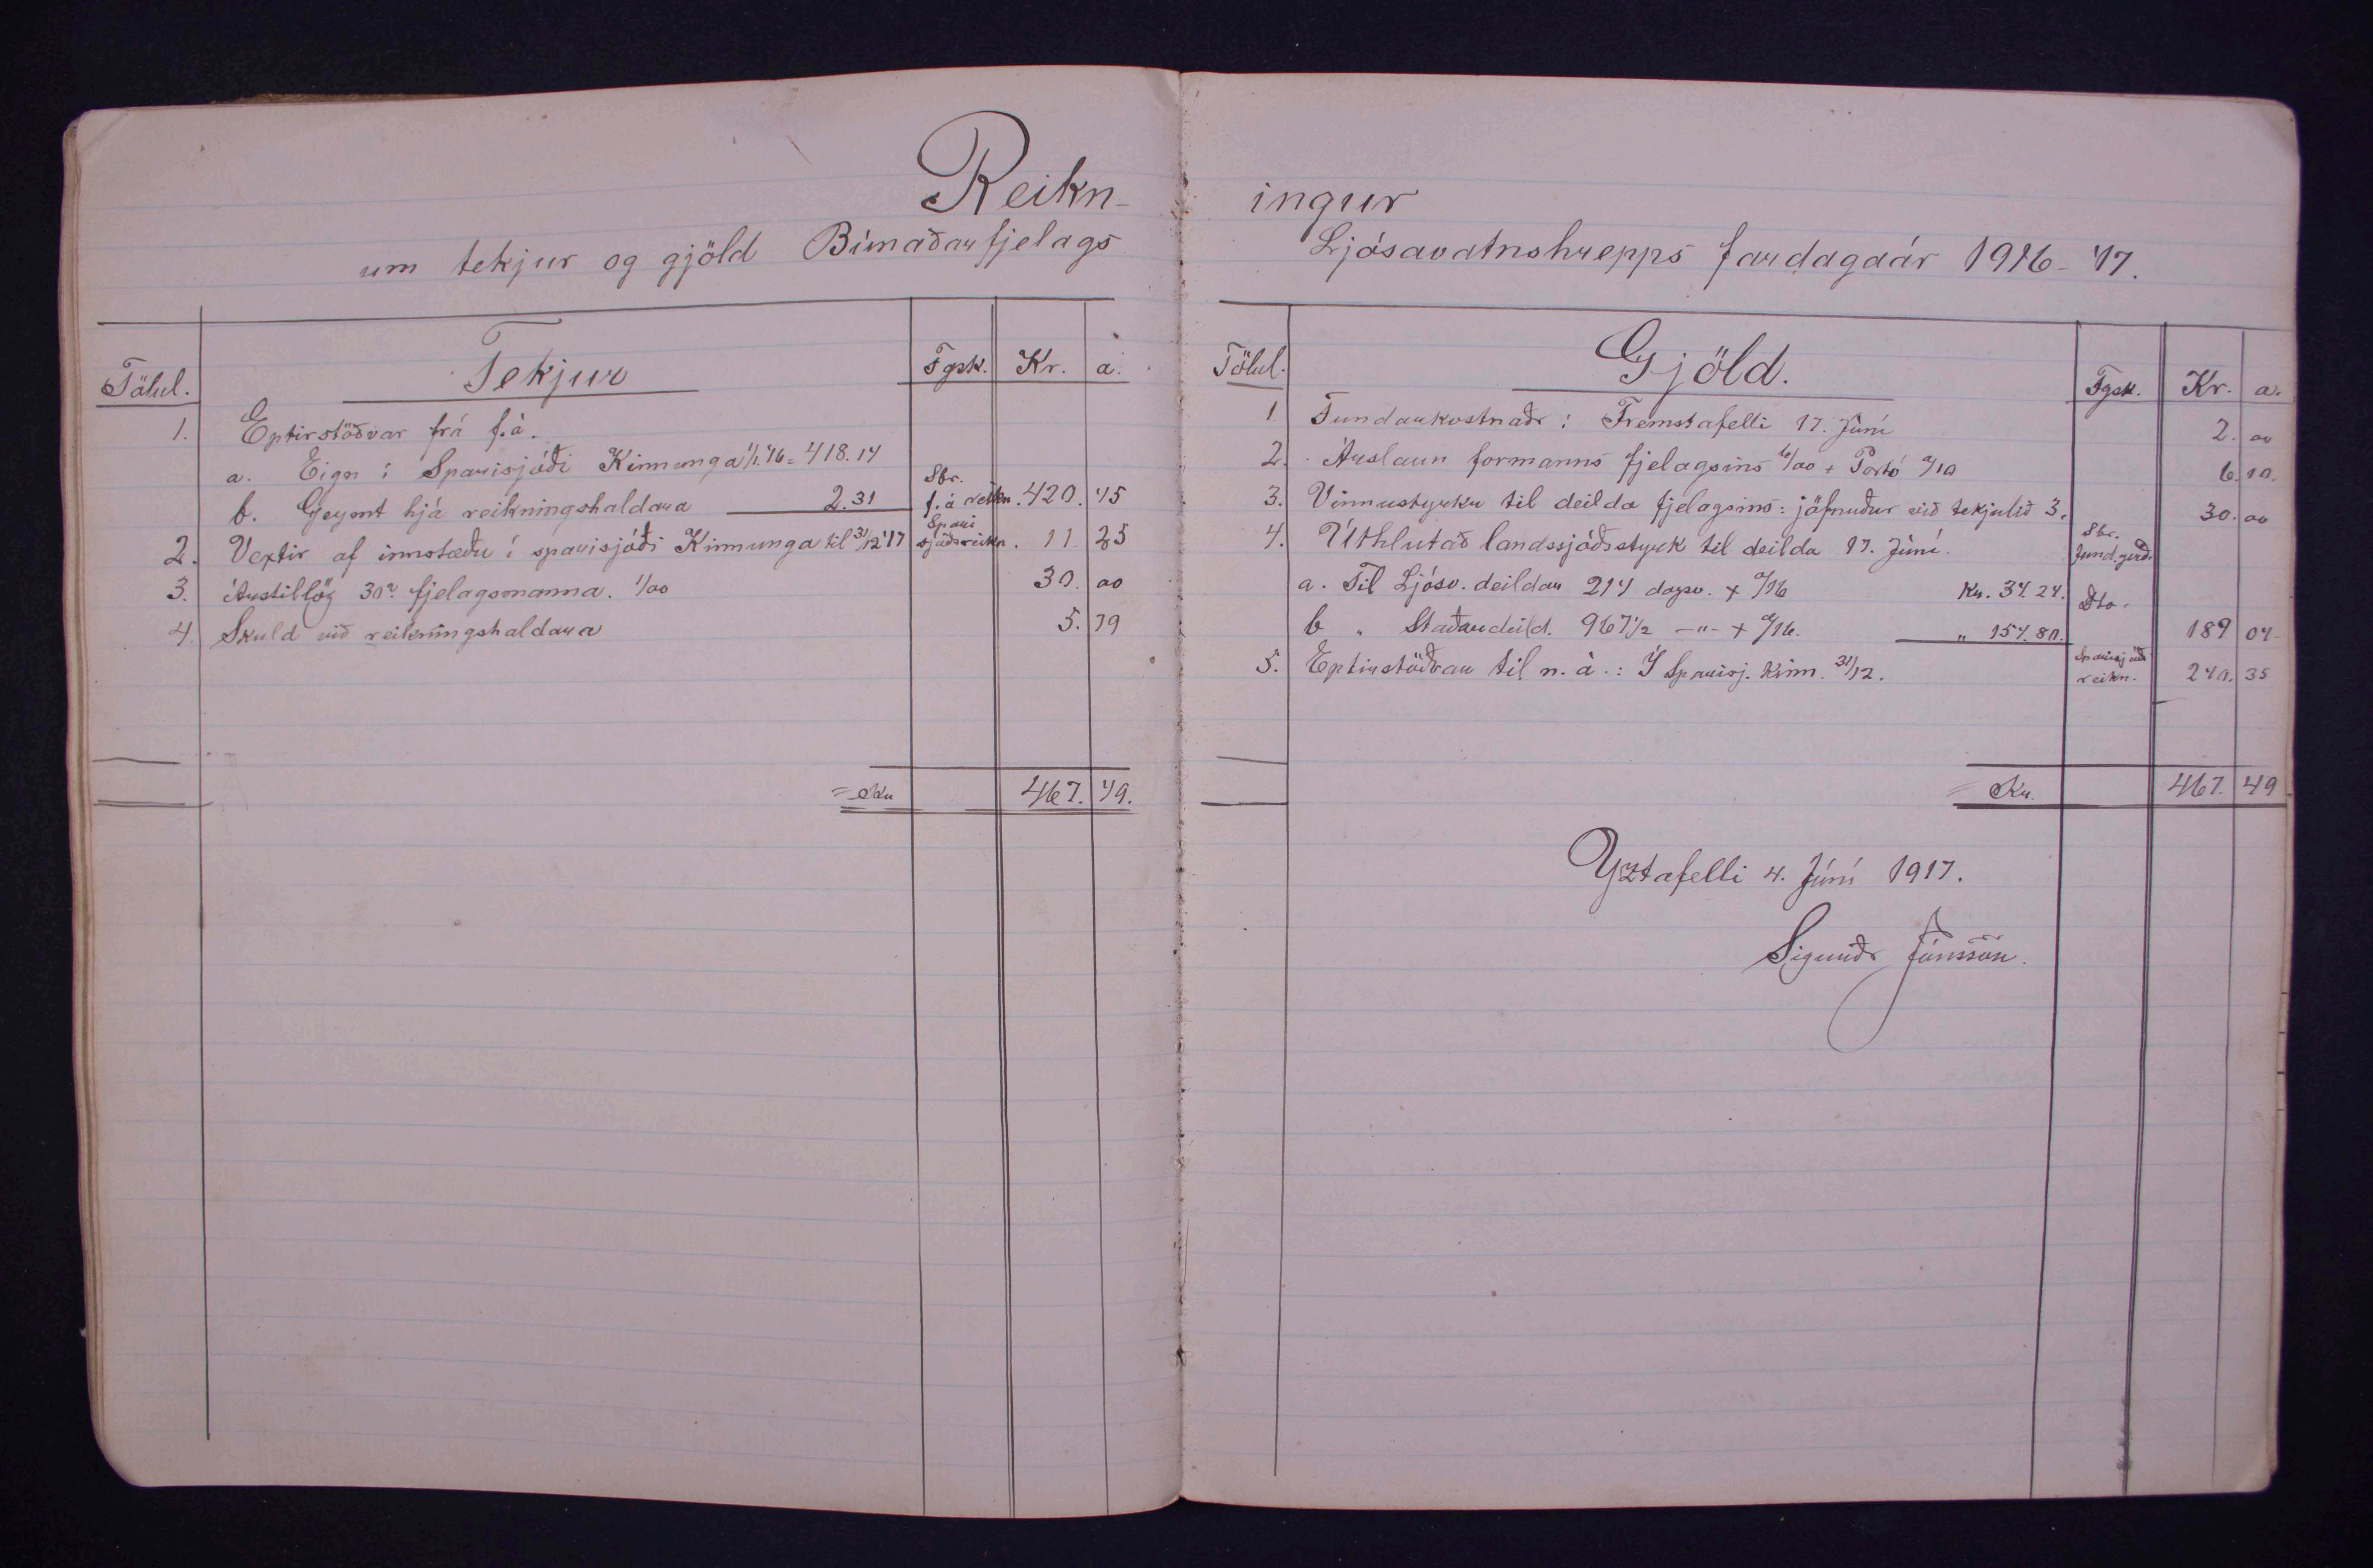 Reikn-
um tekjur og gjöld Búnaðarfjelags
Tölul. Tekjur Fgsk. Kr. a.
1. Eptirstöðvar frá f.á.
a. Eign í Sparisjóði Kinnunga 1/1 '16 = 418.14 Sbr.
b. Geymt hjá reikningshaldara 2.31 f. á reikn. 420. 45
2. Vextir af innstæðu í sparisjóði Kinnunga til 31/12 '17 Spari sjóðsreikn. 11 25
3. Árstillög 30a fjelagsmanna. 1/00 30. 00
4. Skuld við reikningshaldara 5. 79
= Kr 467. 49.
ingur
Ljósavatnshrepps fardagaár 1916-'17.
Tölul. Gjöld. Fgsk. Kr. a.
1 Fundarkostnaðr: Fremstafelli 17. Júní 2. 00
2. Árslaun formanns fjelagsins 6/00 + Portó 0/10 6. 10.
3. Vinnustyrkur til deilda fjelagsins: jöfnuður við tekjulið 3. 30. 00
4. Úthlutað landssjóðsstyrk til deilda 17. Júní. Sbr. fund.gerð.
a. Til Ljósv. deildar 214 dagsv. + 0/16 Kr. 34.24. Dto.
b " Staðardeild. 967 1/2 -"- + 0/16. " 154.80. 189 04
5. Eptirstöðvar til n. á.: Í Sparisj. Kinn. 31/12. Sparisjóðs reikn. 240. 35
= Kr. 467. 49
Yztafelli 4. Júní 1917.
Sigurðr Jónsson.